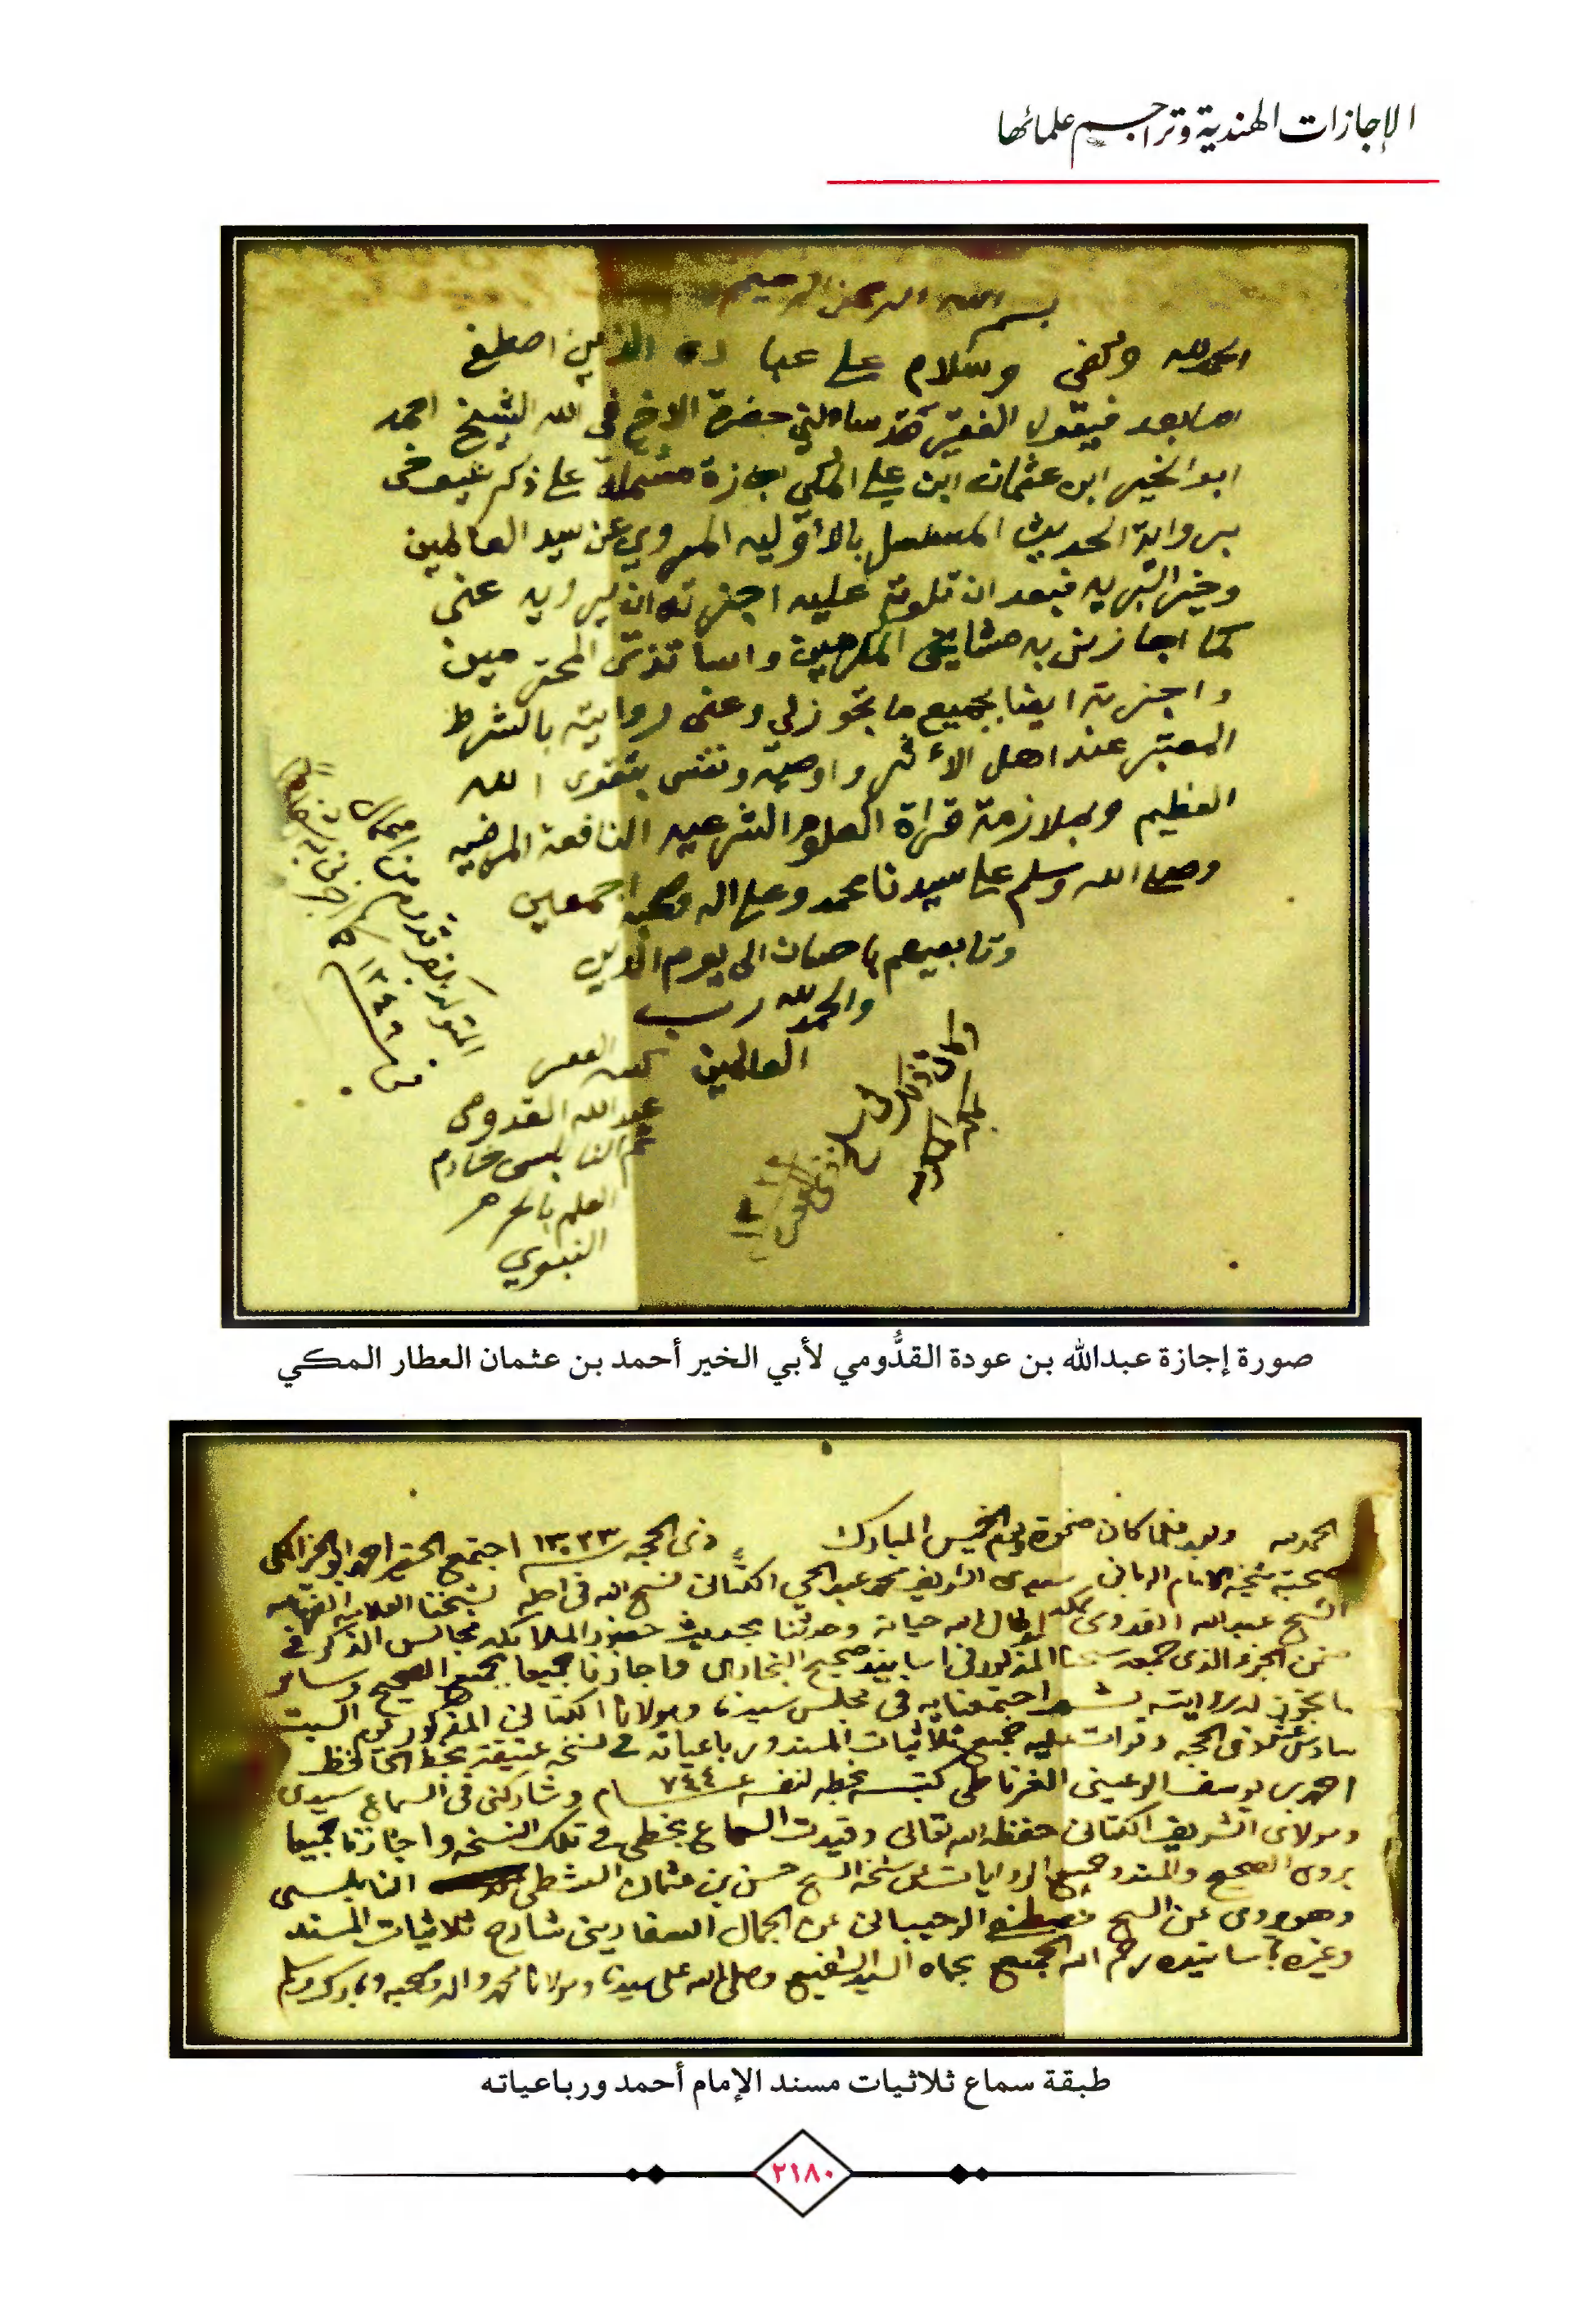 الإجازات الهندية وتراجم علمائها
بسم الله الرحمن الرحيم
الحمد لله وكفى وسلام على عباده الذين اصطفى
اما بعد فيقول الفقير قد سالني حضرة الاخ في الله الشيخ احمد
ابو الخير ابن عثمان ابن علي المكي اجازة مشتملة على ذكر
برواية الحديث المسلسل بالأوليه المروي عن سيد العالمين
وخير البريه فبعد ان تلوته عليه اجزته ان يرويه عني
كما اجازني به مشايخي المكرمين واساتذتي المحترمين
واجزته ايضا بجميع ما تجوز لي وعني روايته بالشرط
المعتبر عند اهل الأثر واوصيه ونفسي بتقوى الله
العظيم وبملازمة قراة العلوم الشرعيه النافعة المرضيه
وصلى الله وسلم على سيدنا محمد وعلى اله وصحبه اجمعين
وتابعيهم باحسان الى يوم الدين
والحمد لله رب
العالمين
كتبه الفقير
عبد الله القدومي
ثم النابلسي خادم
العلم بالحرم
النبوي
وكان ذلك في
بمكة المكرمة
صورة إجازة عبدالله بن عودة القدُّومي لأبي الخير أحمد بن عثمان العطار المكي
الحمد لله وبعد فلما كان ضحوة يوم الخميس المبارك ذي الحجه سنة ١٣٢٣ اجتمع الحقير احمد ابو الخير المكي
صحبة شيخه الامام الرباني سيدي الشريف محمد عبد الحي الكتاني فسح الله في اجله بشيخنا العلامة الفهامه
الشيخ عبد الله القدومي بمكه اطال الله حياته وحدثنا بحديث حضور الملائكه مجالس الذكر في
ضمن الجزء الذي جمعه شيخنا المذكور في اسانيد صحيح البخاري واجازنا جميعا بجميع الصحيح وسائر
ما تجوز له روايته ثم اجتمعنا به في مجلس سيدنا ومولانا الكتاني المذكور يوم السبت
سادس عشر ذي الحجه وقرات عليه جميع ثلاثيات المسند ورباعياته في نسخه عتيقة بخط الحافظ
احمد بن يوسف الرعيني الغرناطي كتبه بخطه لنفسه عام ٧٤٤ وشاركني في السماع سيدي
ومولاي الشريف الكتاني حفظه الله تعالى وقيدت السماع بخطي في تلك النسخه واجازنا جميعا
يروي الصحيح والمسند وجميع الروايات عن شيخه الشيخ حسن بن عثمان الشطي النابلسي
وهو يروي عن الشيخ مصطفى الرحيباني عن الجمال السفاريني شارح ثلاثيات المسند
وغيره باسانيده رحم الله الجميع بجاه السيد الشفيع وصلى الله على سيدنا ومولانا محمد واله وصحبه وبارك وسلم
طبقة سماع ثلاثيات مسند الإمام أحمد ورباعياته
٢١٨٠